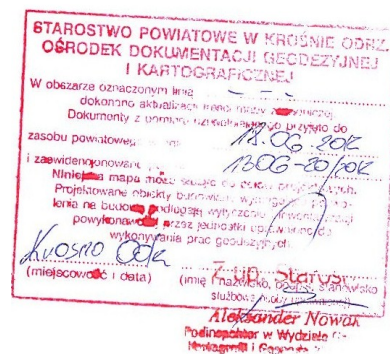 STAROSTWO POWIATOWE W KROŚNIE ODRZ.
OŚRODEK DOKUMENTACJI GEODEZYJNEJ
I KARTOGRAFICZNEJ
W obszarze oznaczonym linią
dokonano aktualizacji treści mapy
Dokumenty z pomiaru przyjęto do
zasobu powiatowego 18.06.2012
i zaewidencjonowano 1306-20/2012
Niniejsza mapa może służyć do celów projektowych.
Projektowane obiekty budowlane
lenia na budowę podlegają wytyczeniu i inwentaryzacji
powykonawczej przez jednostki uprawnione do
wykonywania prac geodezyjnych.
Krosno Odrz
(miejscowość i data) (imię i nazwisko, stanowisko
Z up. Starosty
służbowe
Aleksander Nowak
Podinspektor w Wydziale